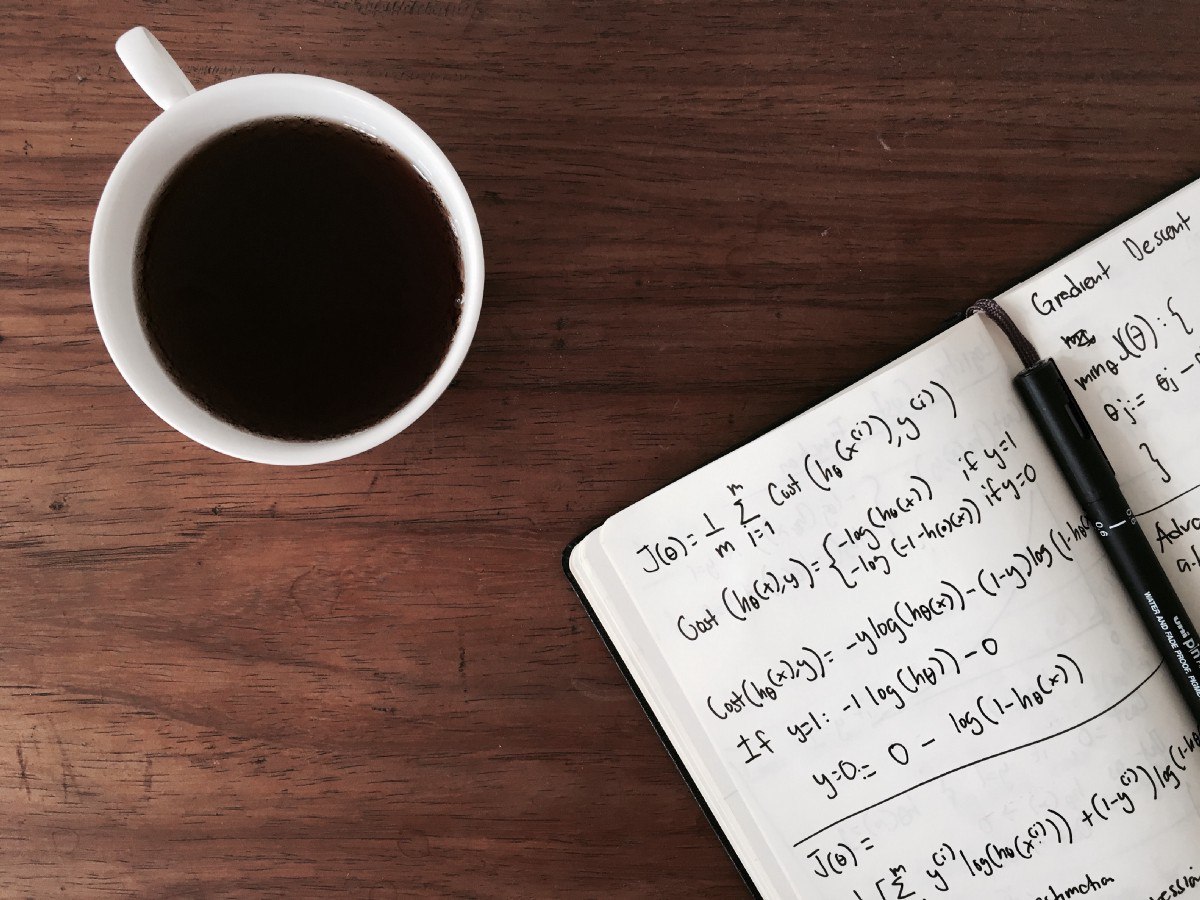 J(θ) = 1/m Σ i=1 m Cost (hθ(x⁽ⁱ⁾), y⁽ⁱ⁾)
Cost (hθ(x),y) = { -log(hθ(x)) if y=1
-log(-1-h(θ)(x)) if y=0
Cost(hθ(x),y) = -ylog(hθ(x)) - (1-y)log(1-hθ
If y=1: -1 log(hθ)) - 0
y=0:= 0 - log(1-hθ(x))
J(θ) =
[ Σ m y⁽ⁱ⁾ log(hθ(x⁽ⁱ⁾)) + (1-y⁽ⁱ⁾) log(1-h
Gradient Descent
minθ J(θ): {
θj:= θj -
}
uni pin
WATER AND FADE PROOF,